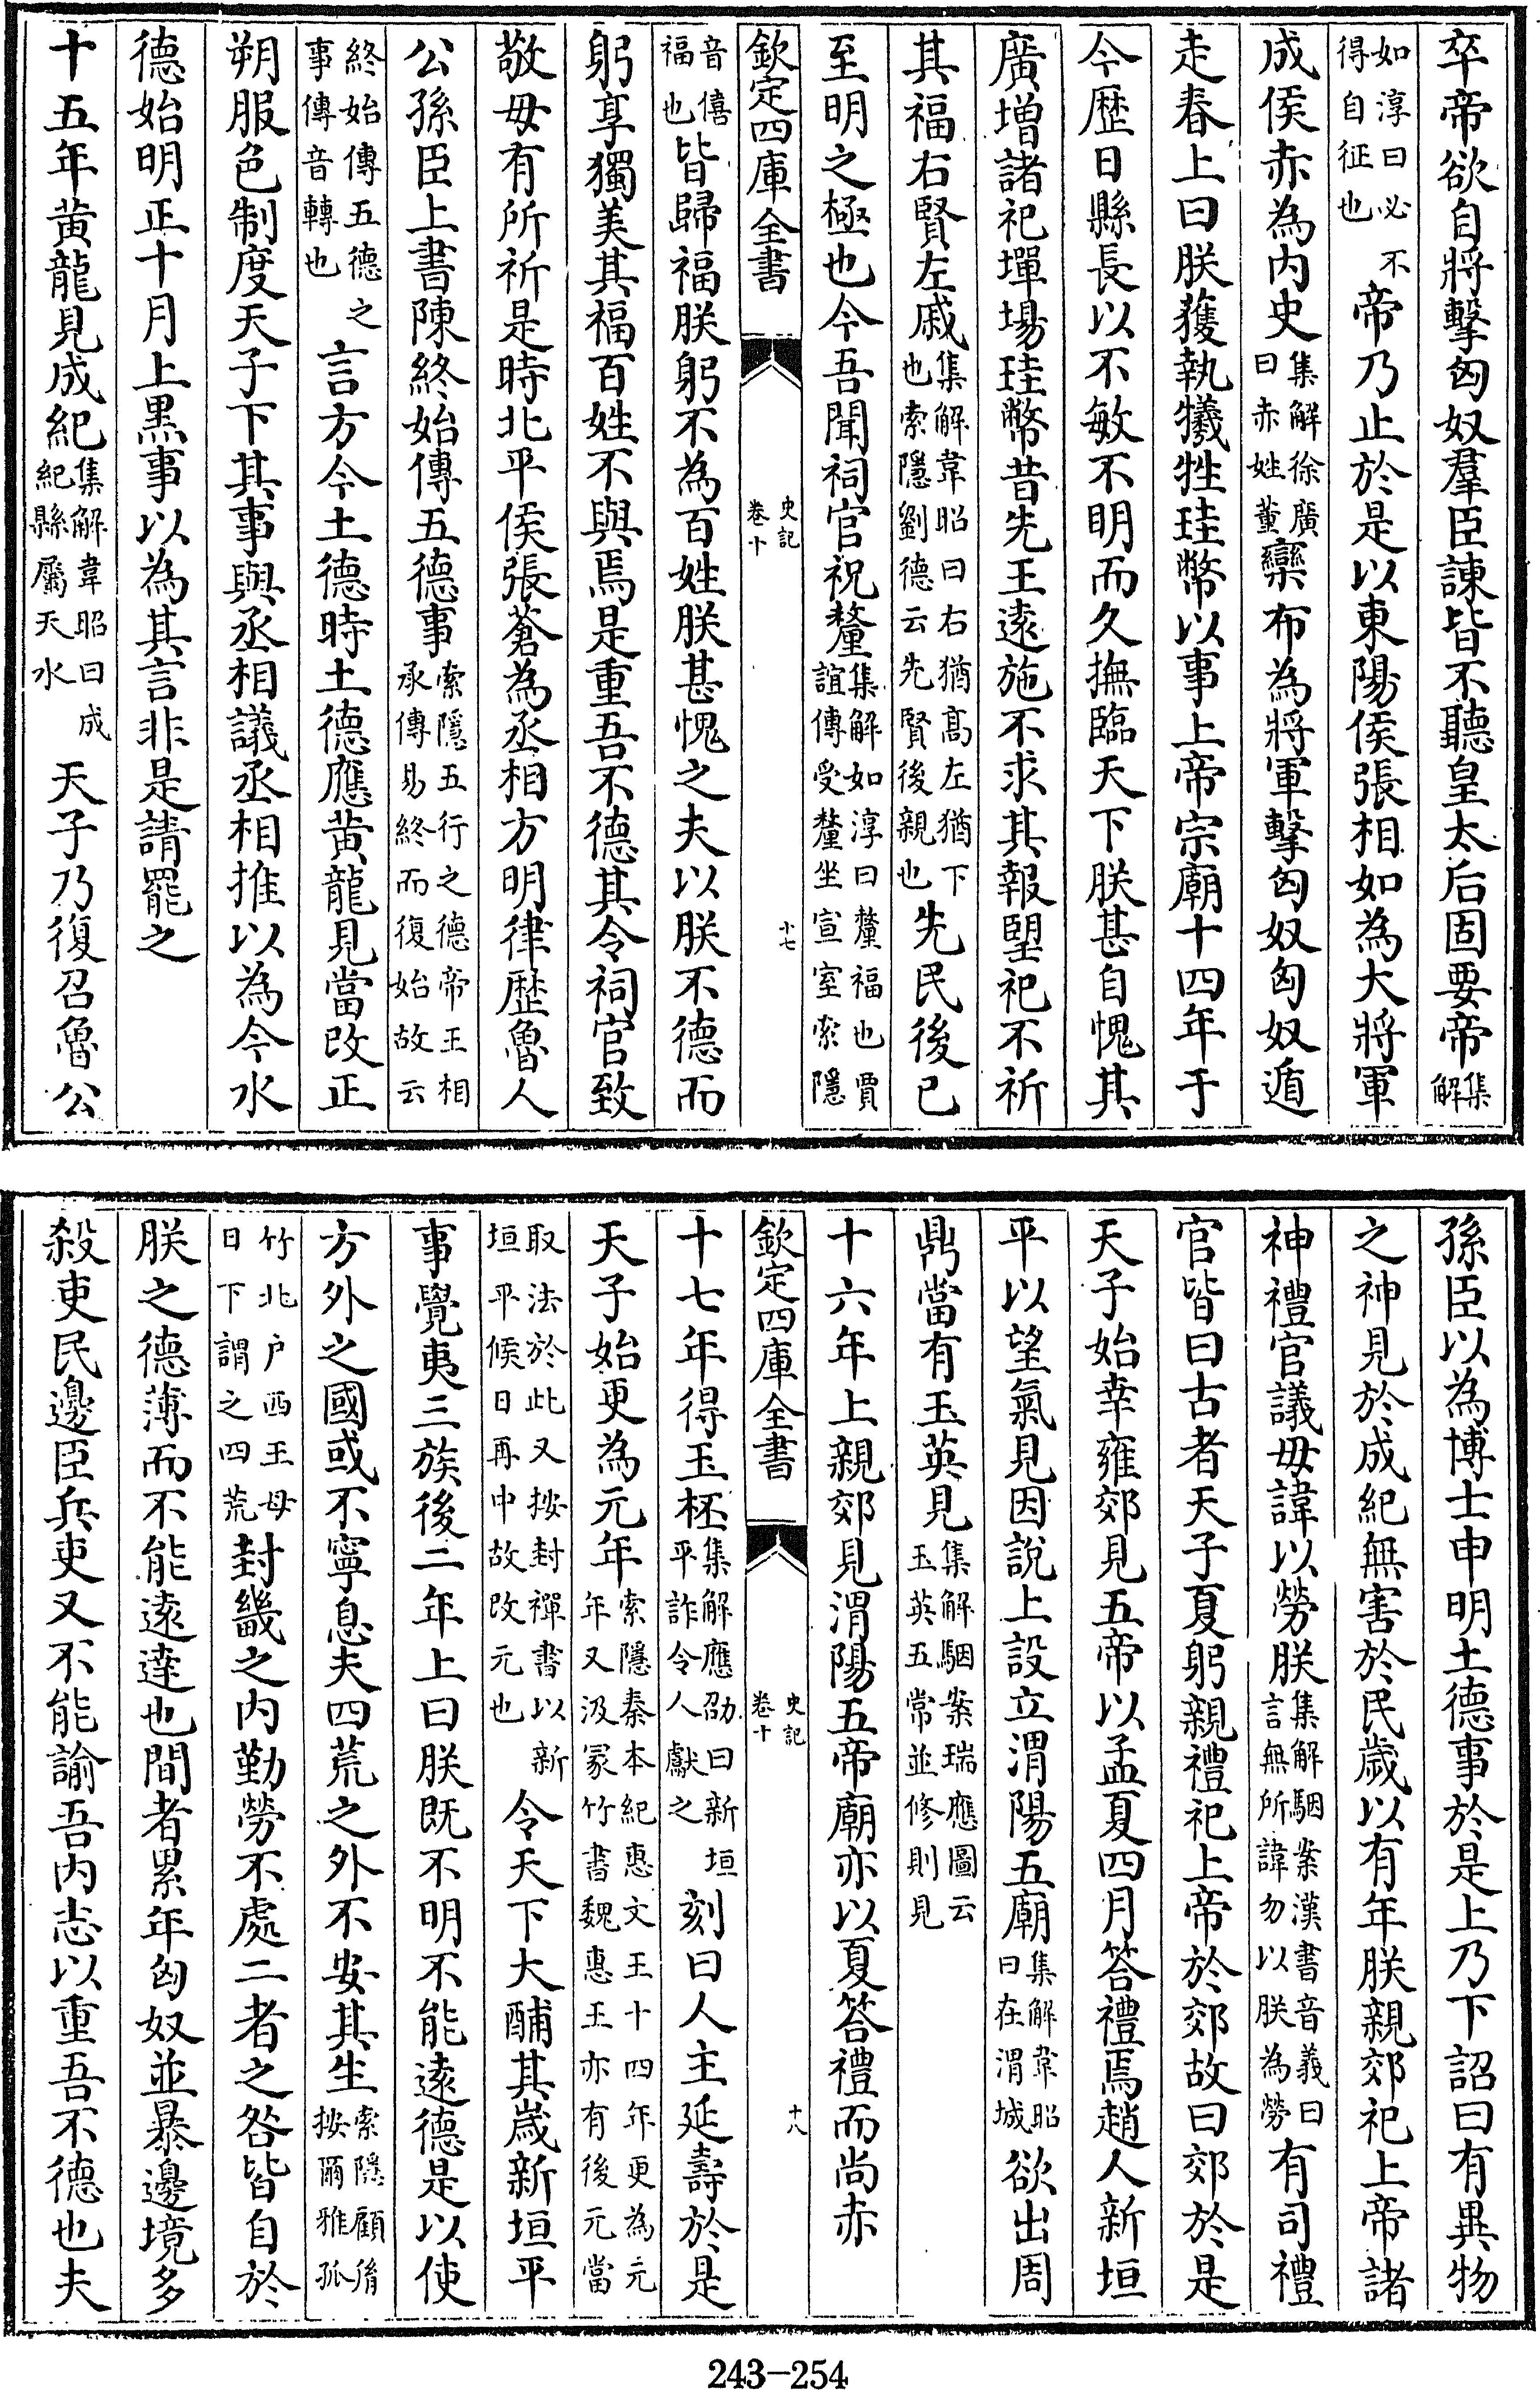 卒帝欲自將擊匈奴羣臣諫皆不聽皇太后固要帝集解
如淳曰必不得自征也帝乃止於是以東陽侯張相如為大將軍
成侯赤為內史集解徐廣曰赤姓董欒布為將軍擊匈奴匈奴遁
走春上曰朕獲執犧牲珪幣以事上帝宗廟十四年于
今歴日縣長以不敏不明而久撫臨天下朕甚自愧其
廣增諸祀墠場珪幣昔先王遠施不求其報望祀不祈
其福右賢左戚集解韋昭曰右猶高左猶下也索隱劉德云先賢後親也先民後已
至明之極也今吾聞祠官祝釐集解如淳曰釐福也賈誼傳受釐坐宣室索隱
欽定四庫全書 史記卷十 十七
音僖福也皆歸福朕躬不為百姓朕甚愧之夫以朕不德而
躬享獨美其福百姓不與焉是重吾不德其令祠官致
敬毋有所祈是時北平侯張蒼為丞相方明律歴魯人
公孫臣上書陳終始傳五德事索隱五行之德帝王相承傳易終而復始故云
終始傳五德之事傳音轉也言方今土德時土德應黄龍見當改正
朔服色制度天子下其事與丞相議丞相推以為今水
德始明正十月上黑事以為其言非是請罷之
十五年黄龍見成紀集解韋昭曰成紀縣屬天水天子乃復召魯公
孫臣以為博士申明土德事於是上乃下詔曰有異物
之神見於成紀無害於民歲以有年朕親郊祀上帝諸
神禮官議毋諱以勞朕集解駰案漢書音義曰言無所諱勿以朕為勞有司禮
官皆曰古者天子夏躬親禮祀上帝於郊故曰郊於是
天子始幸雍郊見五帝以孟夏四月答禮焉趙人新垣
平以望氣見因說上設立渭陽五廟集解韋昭曰在渭城欲出周
鼎當有玉英見集解駰案瑞應圖云玉英五常並修則見
十六年上親郊見渭陽五帝廟亦以夏答禮而尚赤
欽定四庫全書 史記卷十 十八
十七年得玉杯集解應劭曰新垣平詐令人獻之刻曰人主延壽於是
天子始更為元年索隱秦本紀惠文王十四年更為元年又汲冢竹書魏惠王亦有後元當
取法於此又按封禪書以新垣平候日再中故改元也令天下大酺其歲新垣平
事覺夷三族後二年上曰朕既不明不能遠德是以使
方外之國或不寧息夫四荒之外不安其生索隱顧胤按爾雅孤
竹北户西王母日下謂之四荒封畿之內勤勞不處二者之咎皆自於
朕之德薄而不能遠達也間者累年匈奴並暴邊境多
殺吏民邊臣兵吏又不能諭吾內志以重吾不德也夫
243-254